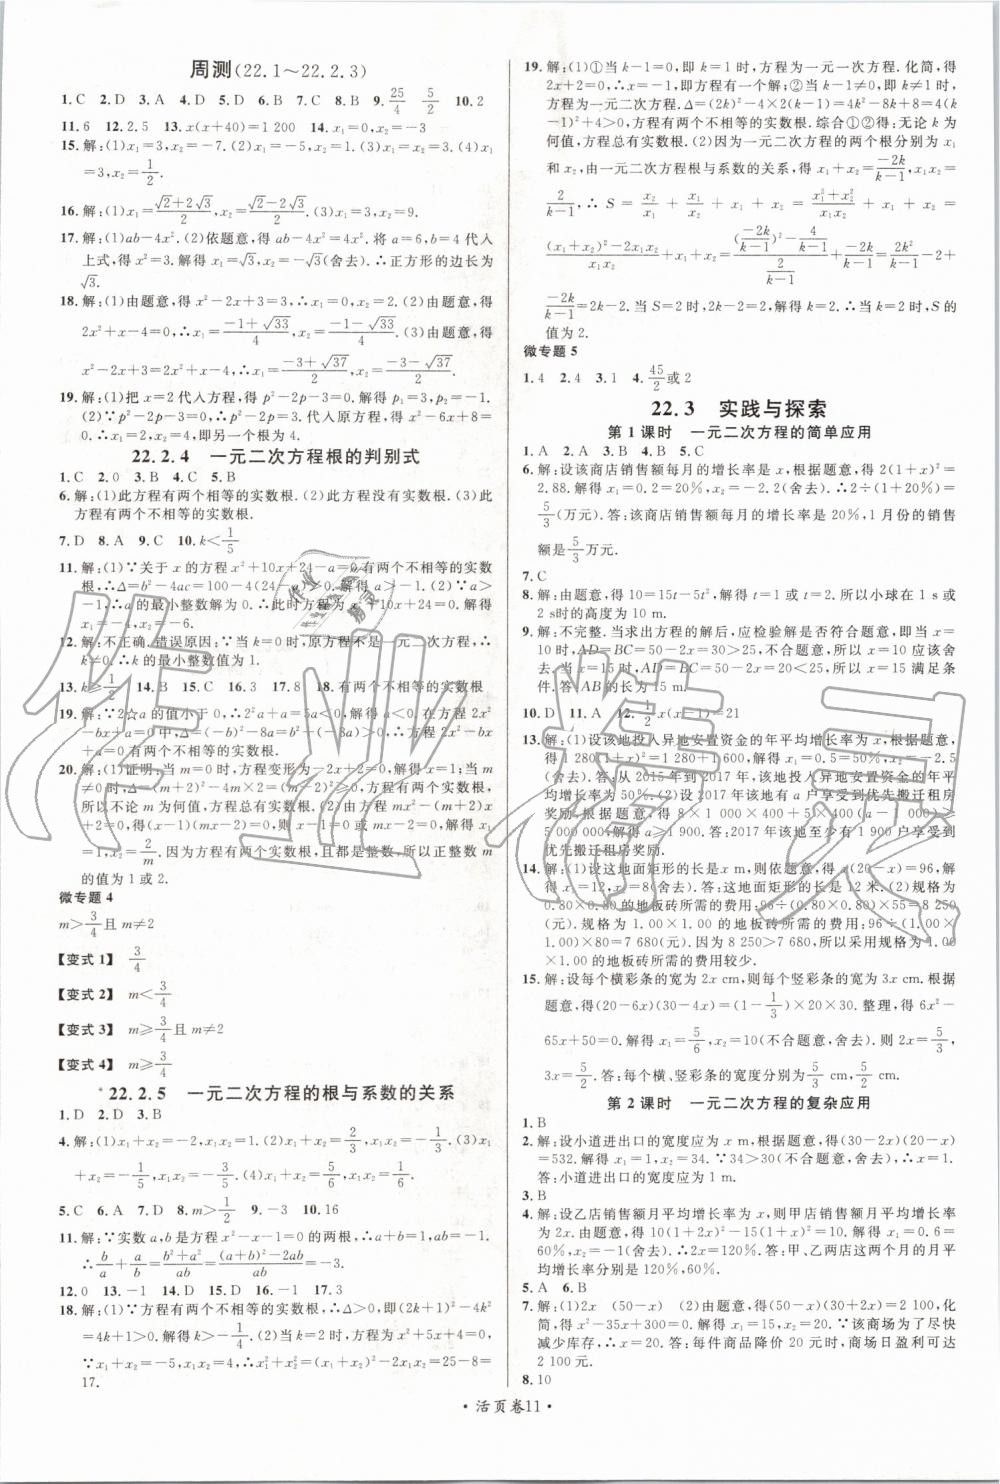 周测(22.1～22.2.3)
1.C 2.D 3.A 4.D 5.D 6.B 7.C 8.B 9.25/4 5/2 10.2
11.6 12.2.5 13.x(x+40)=1 200 14.x₁=0,x₂=-3
15.解:(1)x₁=3,x₂=-7.(2)x₁=-5,x₂=1.(3)x₁=3.(4)x₁
=3,x₂=1/2.
16.解:(1)x₁=(√2+2√3)/2,x₂=(√2-2√3)/2.(3)x₁=3,x₂=9.
17.解:(1)ab-4x².(2)依题意,得 ab-4x²=4x².将 a=6,b=4 代入
上式,得 x²=3.解得 x₁=√3,x₂=-√3(舍去).∴正方形的边长为
√3.
18.解:(1)由题意,得 x²-2x+3=3,∴x₁=0,x₂=2.(2)由题意,得
2x²+x-4=0,∴x₁=(-1+√33)/4,x₂=(-1-√33)/4.(3)由题意,得
x²-2x+3+x²+5x-10=0,∴x₁=(-3+√37)/2,x₂=(-3-√37)/2.
19.解:(1)把 x=2 代入方程,得 p²-2p-3=0.解得 p₁=3,p₂=-1.
(2)∵p²-2p-3=0,∴p²-2p=3.代入原方程,得 x²-6x+8=0.
∴x₁=2,x₂=4,即另一个根为 4.
22.2.4 一元二次方程根的判别式
1.C 2.0 3.B 4.C 5.B
6.解:(1)此方程有两个相等的实数根.(2)此方程没有实数根.(3)此
方程有两个不相等的实数根.
7.D 8.A 9.C 10.k<1/5
11.解:(1)∵关于 x 的方程 x²+10x+24-a=0 有两个不相等的实数
根,∴Δ=b²-4ac=100-4(24-a)>0.解得 a>-1.(2)∵a>
-1,∴a 的最小整数解为 0.∴此时方程为 x²+10x+24=0.解得
x₁=-4,x₂=-6.
12.解:不正确.错误原因:∵当 k=0 时,原方程不是一元二次方程,∴
k≠0.∴k 的最小整数值为 1.
13.k≥ 14.B 15.C 16.3 17.8 18.有两个不相等的实数根
19.解:∵2☆a 的值小于 0,∴2²a+a=5a<0,解得 a<0.在方程 2x²
-bx+a=0 中,Δ=b²-8a≥-8a>0,∴方程有两个不相等的实数根.
20.解:(1)证明:当 m=0 时,方程变形为
所以不论 m 为何值,方程总有实数根.(2)由方程 mx²-(m+2)x
+2=0,得(x-1)(mx-2)=0,则 x-1=0 或 mx-2=0.解得 x₁=
1,x₂=2/m.因为方程有两个实数根,且都是整数,所以正整数 m
的值为 1 或 2.
微专题 4
m>3/4且 m≠2
【变式 1】 3/4
【变式 2】 m<3/4
【变式 3】 m≥3/4且 m≠2
【变式 4】 m≥3/4
*22.2.5 一元二次方程的根与系数的关系
1.D 2.D 3.B
4.解:(1)x₁+x₂=-2,x₁x₂=-1.(2)x₁+x₂=2/3,x₁x₂=-1/3.(3)x₁
+x₂=-1/5,x₁x₂=-3/5.(4)x₁+x₂=5/2,x₁x₂=-1/2.
5.C 6.A 7.D 8.m>1/2 9.-3 10.16
11.解:∵实数 a,b 是方程 x²-x-1=0 的两根,∴a+b=1,ab=-1.
∴b/a+a/b=(b²+a²)/ab=((a+b)²-2ab)/ab=-3.
12.0 13.-1 14.D 15.D 16.-1 17.3
18.解:(1)∵方程有两个不相等的实数根,∴Δ>0,即(2k+1)²-4k²
=4k+1>0.∴k>-1/4.(2)当 k=2 时,方程为 x²+5x+4=0.
∵x₁+x₂=-5,x₁x₂=4,∴x₁²+x₂²=(x₁+x₂)²-2x₁x₂=25-8=
17.
19.解:(1)①当 k-1=0,即 k=1 时,方程为一元一次方程.化简,得
2x+2=0,∴x=-1,即方程有一个解;②当 k-1≠0,即 k≠1 时,
方程为一元二次方程.Δ=(2k)²-4×2(k-1)=4k²-8k+8=4(k
-1)²+4>0,∴方程有两个不相等的实数根.综合①②得:无论 k 为
何值,方程总有实数根.(2)因为一元二次方程的两个根分别为 x₁
和 x₂,由一元二次方程根与系数的关系,得 x₁+x₂=-2k/(k-1),x₁x₂=
2/(k-1),∴ S = x₂/x₁ + x₁/x₂ + x₁ + x₂ = (x₁²+x₂²)/(x₁x₂) + x₁ + x₂ =
((x₁+x₂)²-2x₁x₂)/(x₁x₂)+x₁+x₂=((-2k/(k-1))²-4/(k-1))/(2/(k-1))+(-2k)/(k-1)=2k²/(k-1)-2+
-2k/(k-1)=2k-2.当 S=2 时,2k-2=2,解得 k=2.∴当 k=2 时,S 的
值为 2.
微专题 5
1.4 2.4 3.1 4.45/2或 2
22.3 实践与探索
第 1 课时 一元二次方程的简单应用
1.A 2.A 3.B 4.B 5.C
6.解:设该商店销售额每月的增长率是 x,根据题意,得 2(1+x)²=
2.88.解得 x₁=0.2=20%,x₂=-2.2(舍去).∴2÷(1+20%)=
5/3(万元).答:该商店销售额每月的增长率是 20%,1 月份的销售
额是5/3万元.
7.C
8.解:由题意,得 10=15t-5t²,解得 t=1 或 t=2.所以小球在 1 s或
2 s时的高度为 10 m.
9.解:不完整.当求出方程的解后,应检验解是否符合题意,即当 x=
10 时,AD=BC=50-2x=30>25,不合题意,舍去.当 x=15
时,50-2x=20,AD=BC=50-2x=20<25,所以 x=15 满足条
件.答:AB 的长为 15 m.
10.D 11.A 12.1/2x(x-1)=21
13.解:(1)设该地投入异地安置资金的年平均增长率为 x,根据题意,
得 1 280(1+x)²=1 280+1 600,解得 x₁=0.5=50%,x₂=-2.5
(舍去).答:从 2015 年到 2017 年,该地投入异地安置资金的年平
均增长率为 50%.(2)设 2017 年该地有 a 户享受到优先搬迁租房
奖励,根据题意,得 8×1 000×400+5×400(a-1 000)≥
5 000 000,解得 a≥1 900.答:2017 年该地至少有 1 900 户享受到
优先搬迁租房奖励.
14.解:(1)设这地面矩形的长是 x m,则依题意,得 x(20-x)=96,解
得 x₁=12,x₂=8(舍去).答:这地面矩形的长是 12 米.(2)规格为
0.80×0.80 的地板砖所需的费用:96÷(0.80×0.80)×55=8 250
(元).规格为 1.00×1.00 的地板砖所需的费用:96÷(1.00×
1.00)×80=7 680(元).因为 8 250>7 680,所以采用规格为 1.00
×1.00 的地板砖所需的费用较少.
15.解:设每个横彩条的宽为 2x cm,则每个竖彩条的宽为 3x cm.根据
题意,得(20-6x)(30-4x)=(1-1/3)×20×30.整理,得 6x²-
65x+50=0.解得 x₁=5/6,x₂=10(不合题意,舍去).则 2x=5/3,
3x=5/2.答:每个横、竖彩条的宽度分别为5/3 cm,5/2 cm.
第 2 课时 一元二次方程的复杂应用
1.B
2.解:设小道进出口的宽度应为 x m,根据题意,得(30-2x)(20-x)
=532.解得 x₁=1,x₂=34.∵34>30(不合题意,舍去),∴x=1.
答:小道进出口的宽度应为 1 m.
3.B
4.解:设乙店销售额月平均增长率为 x,则甲店销售额月平均增长率
为 2x.由题意,得 10(1+2x)²-15(1+x)²=10.解得 x₁=0.6=
60%,x₂=-1(舍去).∴2x=120%.答:甲、乙两店这两个月的月平
均增长率分别是 120%,60%.
5.A 6.B
7.解:(1)2x (50-x) (2)由题意,得(50-x)(30+2x)=2 100,化
简,得 x²-35x+300=0.解得 x₁=15,x₂=20.∵该商场为了尽快
减少库存,∴x=20.答:每件商品降价 20 元时,商场日盈利可达
2 100 元.
8.10
·活页卷11·